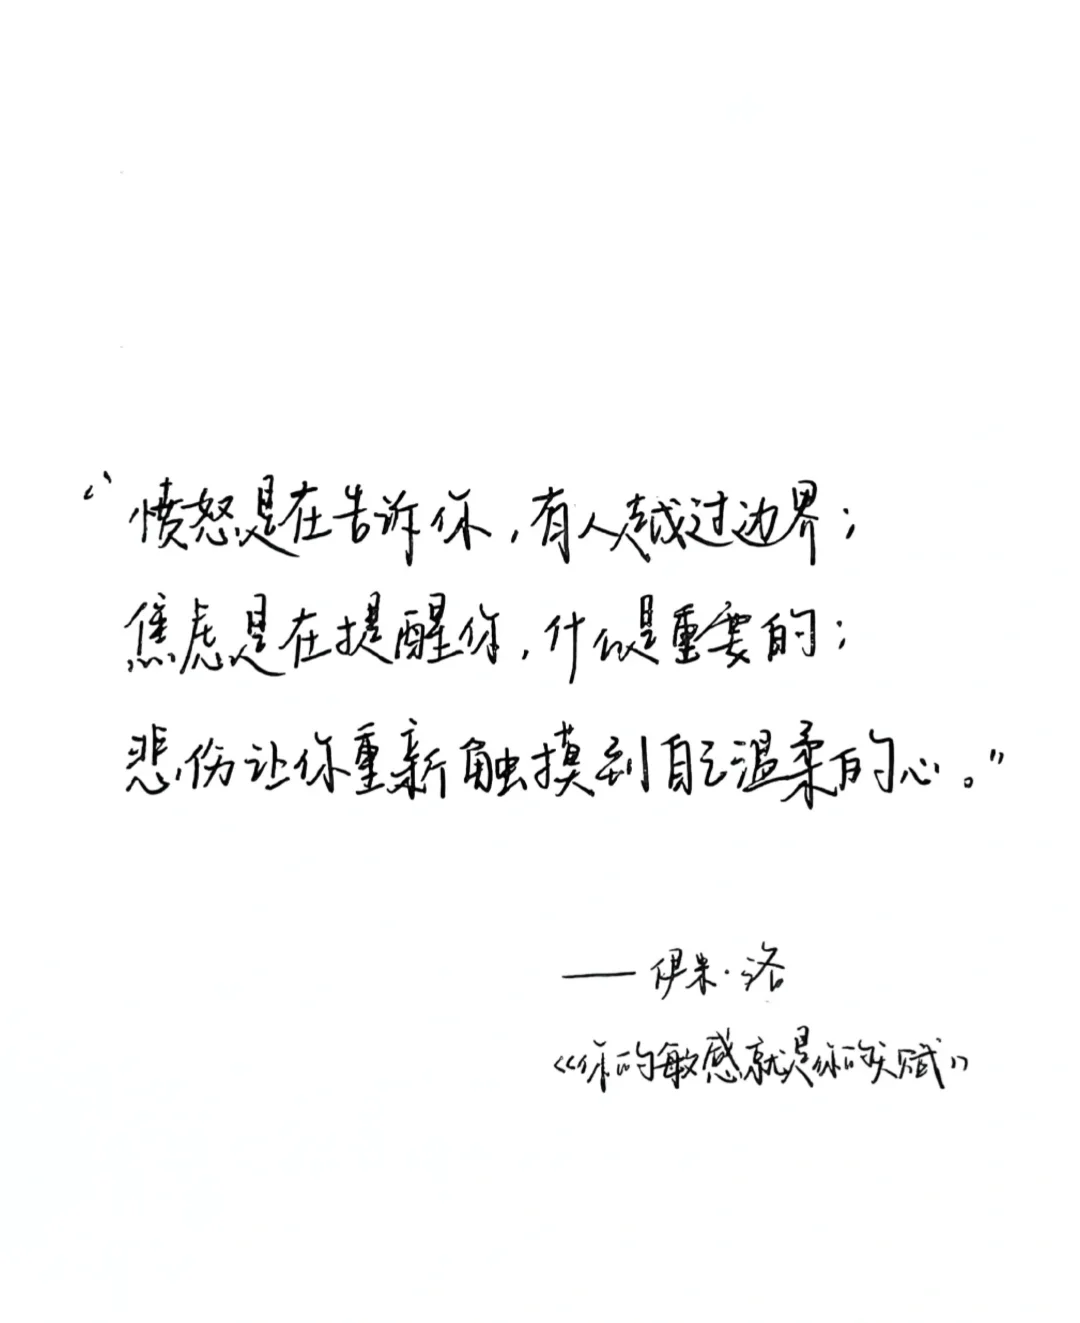 “愤怒是在告诉你，有人越过边界；
焦虑是在提醒你，什么是重要的；
悲伤让你重新触摸到自己温柔的心。”
——伊米·洛
《你的敏感就是你的天赋》